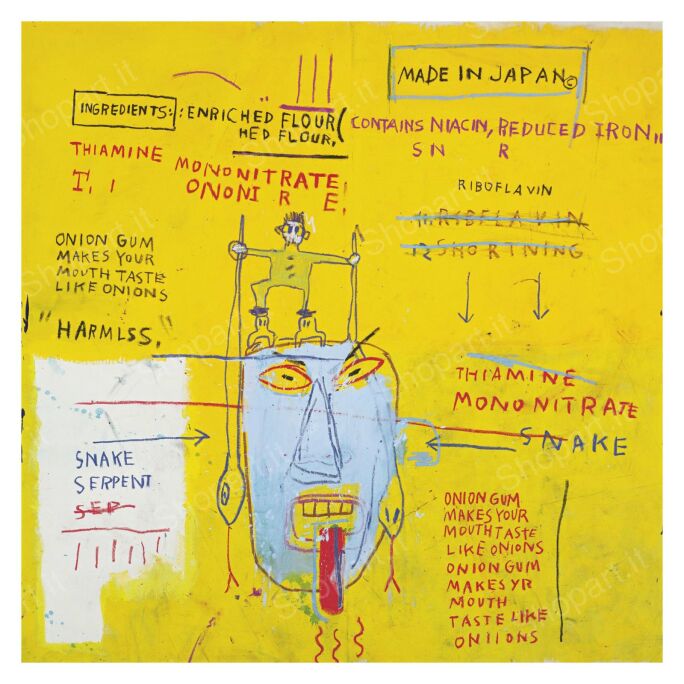 MADE IN JAPAN©
INGREDIENTS: : ENRICHED FLOUR (
HED FLOUR,
CONTAINS NIACIN, REDUCED IRON,,
S N R
THIAMINE MONONITRATE
T. I ONONI R E.
RIBOFLAVIN
11. RIBFLAVIN
12 SHORTNING
ONION GUM
MAKES YOUR
MOUTH TASTE
LIKE ONIONS
"HARMLSS."
THIAMINE
MONONITRATE
SNAKE
SNAKE
SERPENT
SEP
ONION GUM
MAKES YOUR
MOUTH TASTE
LIKE ONIONS
ONION GUM
MAKES YR
MOUTH
TASTE LIKE
ONIIONS
Shopart.it